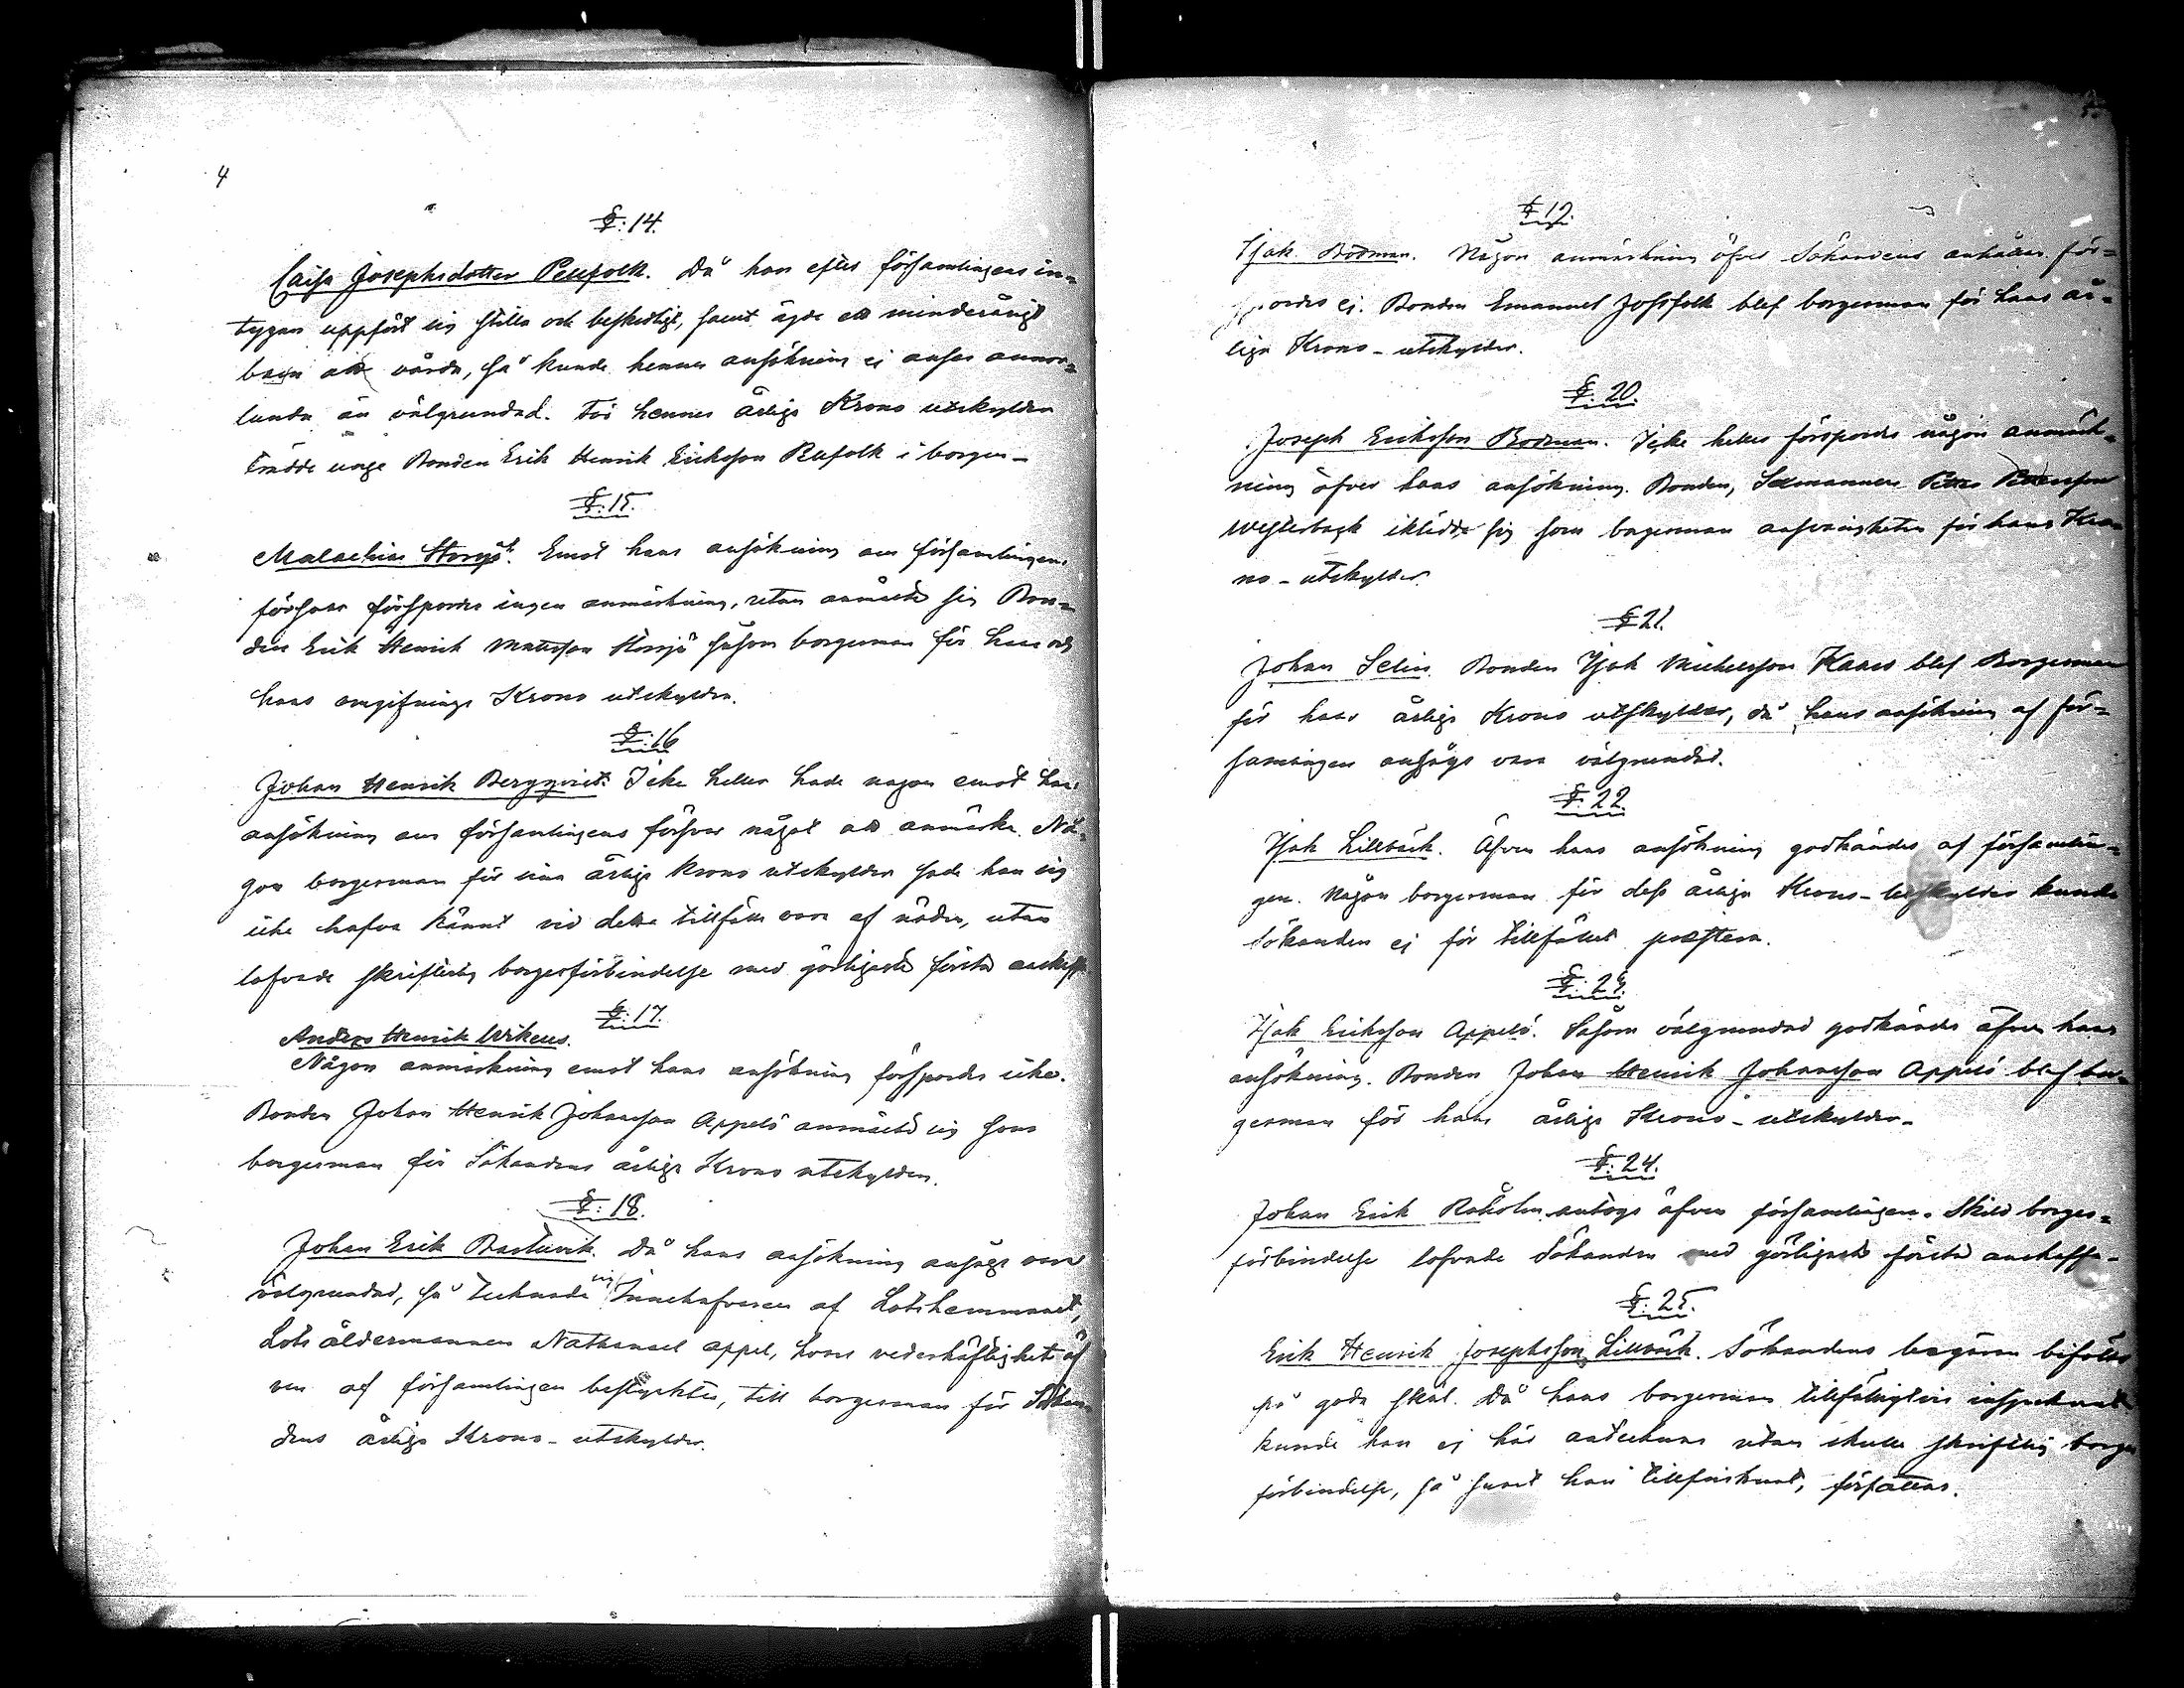 4
§: 14.
Caisa Josephsdotter Pellfolk. Då hon efter församlingens in-
tygan uppfört sig stilla och beskedligt, samt äger ett minderårigt
barn att vårda, så kunde hennes ansökning ej anses annor-
lunda än välgrundad. För hennes årliga Krono utskylder
trädde unge Bonden Erik Henrik Eriksson Pellfolk i borgen-
§: 15.
Malachias Storsjö. Emot hans ansökning om församlingens
försvar förspordes ingen anmärkning, utan anmälte sig Bon-
den Erik Henrik Mattsson Storsjö såsom borgesman för hans och
hans omgifnings Krono utskylder.
§: 16
Johan Henrik Bergqvist. Icke heller hade någon emot hans
ansökning om församlingens försvar något att anmärka. Nå-
gon borgesman för sina årliga Krono utskylder sade han sig
icke hafva kännt vid detta tillfälle vara af nöden, utan
lofvade skriftelig borgesförbindelse med görligaste första anskaffa
§: 17.
Anders Henrik Wikeus.
Någon anmärkning emot hans ansökning förspordes icke.
Bonden Johan Henrik Johansson Appelö anmälte sig som
borgesman för Sökandens årliga Krono utskylder.
§: 18.
Johan Erik Bastuvik. Då hans ansökning ansågs vara
välgrundad, så tecknade sig Innehafvaren af Lotshemmanet,
Lots åldermannen Nathanael Appel, hvars vederhäftighet äf
ven af församlingen bestyrktes, till borgesman för Sökan-
dens årliga Krono-utskylder.
5
§ 19.
Isak Bodman. Någon anmärkning öfver Sökandens anhållan för-
spordes ej. Bonden Emanuel Jossfolk blef borgesman för hans år-
liga Krono-utskylder.
§: 20.
Joseph Eriksson Bodman. Icke heller förspordes någon anmärk-
ning öfver hans ansökning. Bonden, Sexmannen Petter Pettersson
Westerback iklädde sig som borgesman ansvarigheten för hans Kro-
no-utskylder.
§ 21.
Johan Selin. Bonden Isak Michelsson Kaars blef Borgesman
för hans årliga Krono utskylder, då hans ansökning af för-
samlingen ansågs vara välgrundad.
§: 22.
Isak Lillbäck. Äfven hans ansökning godkändes af församlin-
gen. Någon borgesman för dess årliga Krono-utskylder kunde
Sökanden ej för tillfället præstera.
§: 23.
Isak Eriksson Appelö. Såsom välgrundad godkändes äfven hans
ansökning. Bonden Johan Henrik Johansson Appelö blef bor-
gesman för hans årliga Krono-utskylder-
§: 24.
Johan Erik Råholm antogs äfven församlingen. Skild borges-
förbindelse lofvade Sökanden med görligaste första anskaffa-
§: 25.
Erik Henrik Josephsson Lillbäck. Sökandens begäran bifölls
på goda skäl. Då hans borgesman tillfälligtvis insjuknat
kunde han ej här antecknas utan skulle skriftelig borges
förbindelse, så snart han tillfrisknat, författas.